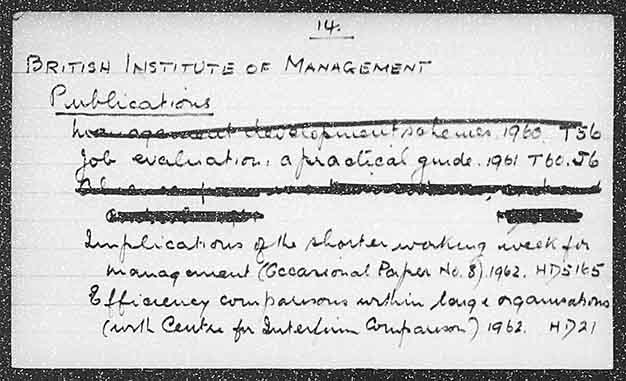 14.
BRITISH INSTITUTE OF MANAGEMENT
Publications
Management development schemes. 1960. T56
Job evaluation: a practical guide. 1961 T60.J6
Implications of the shorter working week for
management (Occasional Paper No. 8). 1962. HD5165
Efficiency comparisons within large organisations
(with Centre for Interfirm Comparison) 1962. HD21